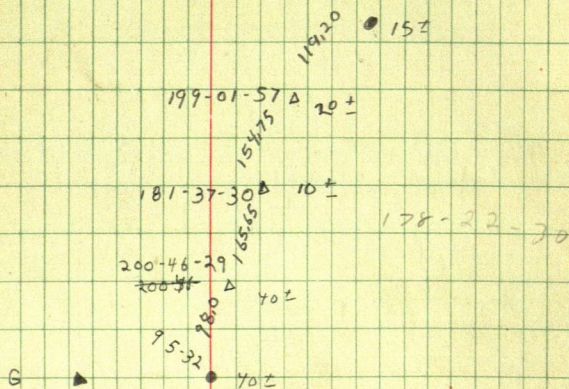 119,20
15±
199-01-57 Δ
20±
154,75
181-37-30 Δ
10±
178-22-30
165,65
200-46-29
Δ
40±
98,0
95-32
G
40±